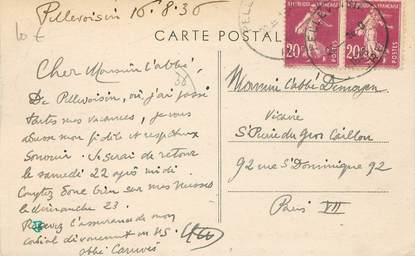 Pellevoisin 16.8.36
10 €
CARTE POSTALE
Cher Monsieur l'abbé,
De Pellevoisin, où j'ai passé
toutes mes vacances, je vous
mon fidèle et respectueux
souvenir. Je serai de retour
le samedi 22 après midi.
Comptez donc bien sur mes messes
le dimanche 23.
Recevez l'assurance de mon
cordial dévouement en NS.
abbé
20c
POSTES
20c
POSTES
Monsieur l'abbé
Vicaire
St Pierre du Gros Caillou
92 rue St Dominique 92
Paris VII